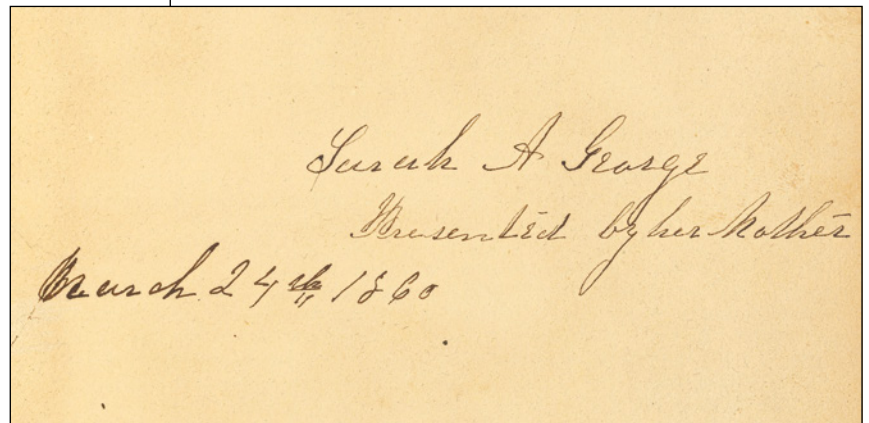 Sarah A George
Presented by her Mother
March 24th 1860